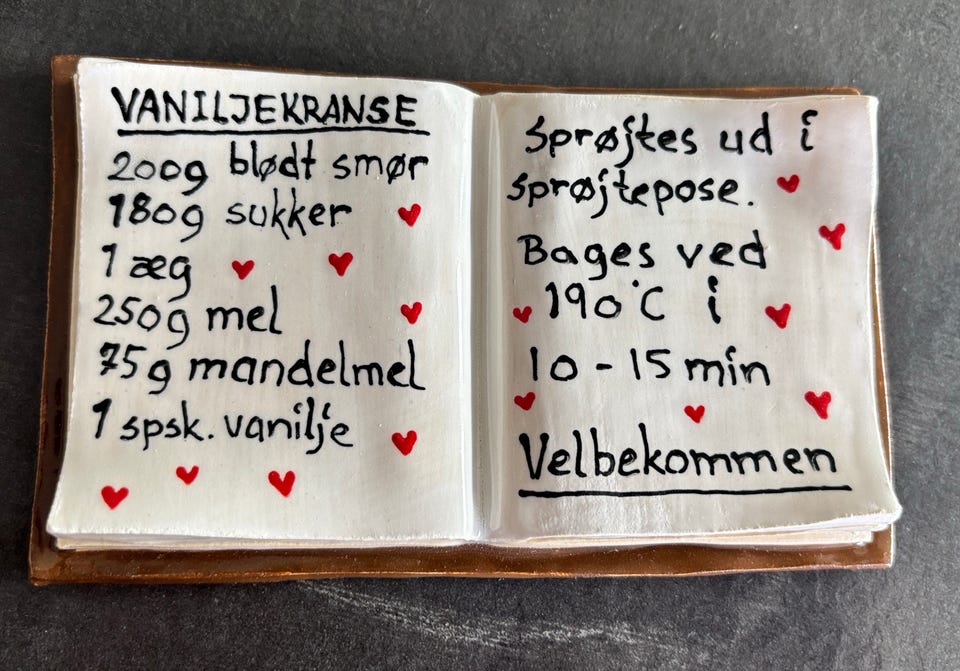 VANILJEKRANSE
200g blødt smør
180g sukker
1 æg
250g mel
75g mandelmel
1 spsk. vanilje
Sprøjtes ud i
sprøjtepose.
Bages ved
190°C i
10-15 min
Velbekommen